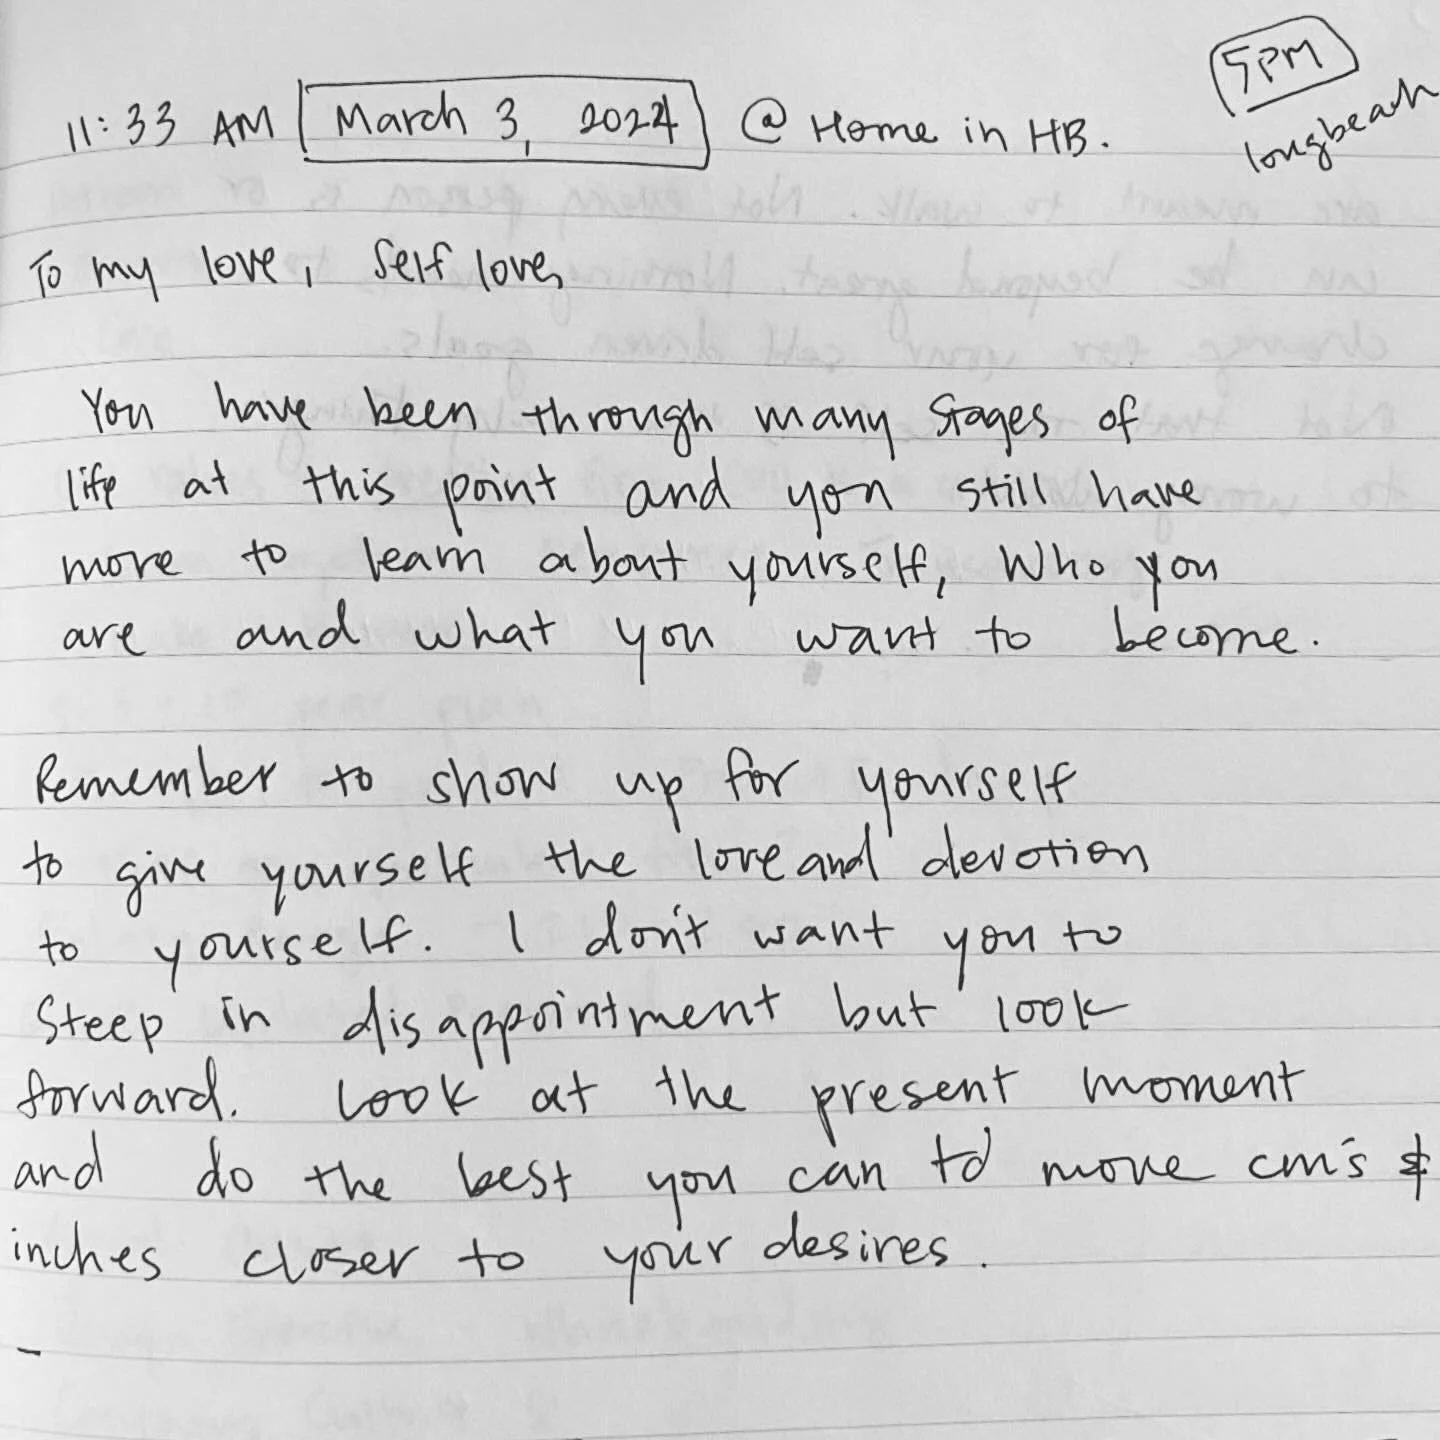 5PM
longbeach
11:33 AM March 3, 2024 @ Home in HB.
To my love, Self love,
You have been through many stages of
life at this point and you still have
more to learn about yourself, Who you
are and what you want to become.
Remember to show up for yourself
to give yourself the love and devotion
to yourself. I don't want you to
Steep in disappointment but look
forward. Look at the present moment
and do the best you can to move cm's &
inches closer to your desires.
-